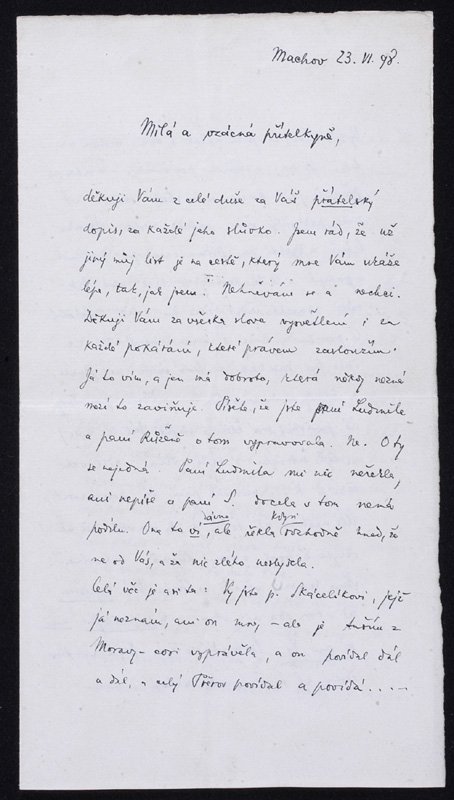 Machov 23. VI. 98.
Milá a vzácná přítelkyně,
děkuji Vám z celé duše za Váš přátelský
dopis, za každé jeho slůvko. Jsem rád, že už
jiný můj list je na cestě, který mne Vám ukáže
lépe, tak, jak jsem. Nehněvám se a nechci.
Děkuji Vám za všecka slova vysvětlení i za
každé pokárání, které právem zasloužím.
Já to vím, a jen má dobrota, která někdy nezná
mezí to zaviňuje. Píšete, že jste paní Ludmile
a paní Růženě o tom vypravovala. Ne. O ty
se nejedná. Paní Ludmila mi nic neřekla,
ani nepíše a paní S. docela v tom nemá
podílu. Ona to ví, ale řekla kdysi rozhodně hned, že
ne od Vás, a že nic zlého neslyšela.
Celá věc je asi ta: Vy jste p. Skácelíkovi, jejž
já neznám, ani on mne, – ale je tuším z
Moravy – cosi vyprávěla, a on povídal dál
a dál, a celý Přerov povídal a povídá....–